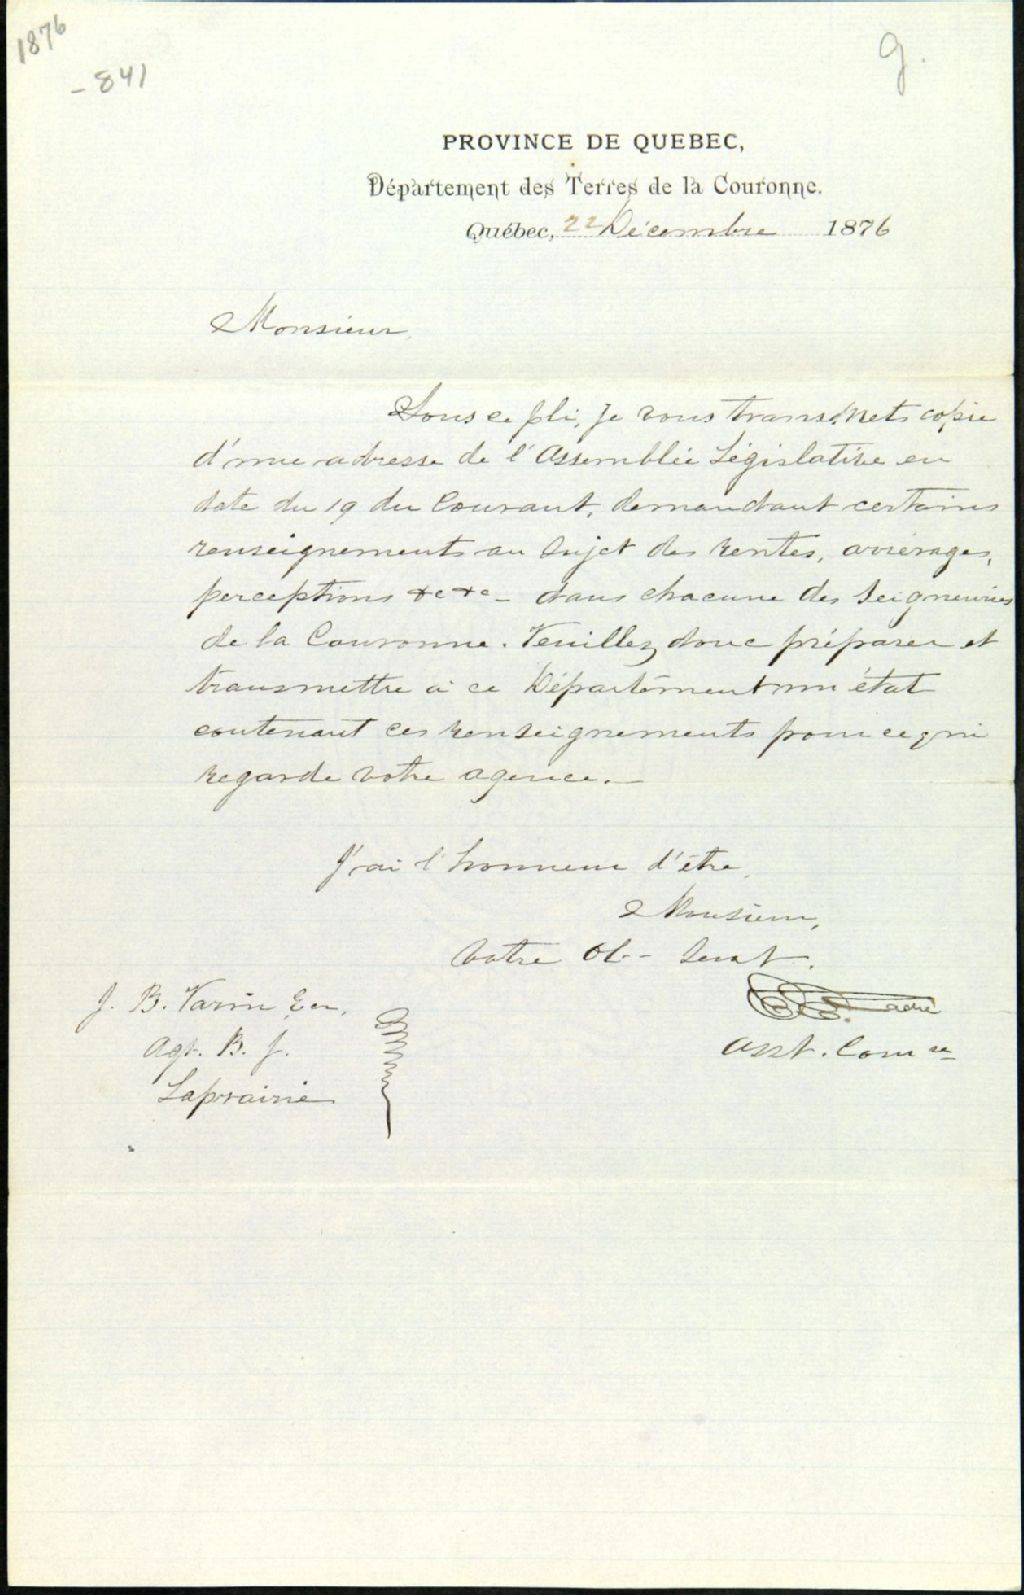 1876
- 841
g.
PROVINCE DE QUEBEC,
Département des Terres de la Couronne.
Québec, 22 Décembre 1876
Monsieur,
Sous ce pli, je vous transmets copie
d'une adresse de l'Assemblée Législative en
date du 19 du Courant, demandant certains
renseignements au sujet des rentes, arrérages,
perceptions &c &c - dans chacune des Seigneuries
de la Couronne. Veuillez donc préparer et
transmettre à ce Département un état
contenant ces renseignements pour ce qui
regarde votre agence. -
J'ai l'honneur d'être,
Monsieur,
Votre Ob- Servt.
E. E. Taché
J. B. Varin Ecr,
Asst. Comre
Agt. B. J.
Laprairie